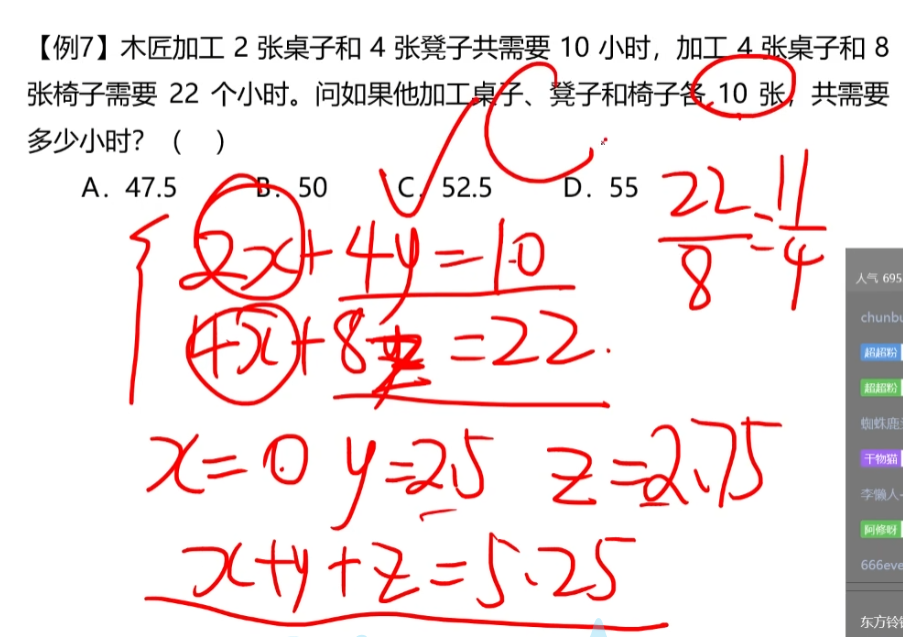 【例7】木匠加工 2 张桌子和 4 张凳子共需要 10 小时，加工 4 张桌子和 8
张椅子需要 22 个小时。问如果他加工桌子、凳子和椅子各 10 张，共需要
多少小时？（ ）
A．47.5 B．50 C．52.5 D．55
22/8=11/4
2x+4y=10
4x+8z=22.
x=0 y=2.5 z=2.75
x+y+z=5.25
人气 695
chunbu
超超粉
超超粉
蜘蛛鹿
干物猫
李懒人
阿修呀
666eve
东方铃